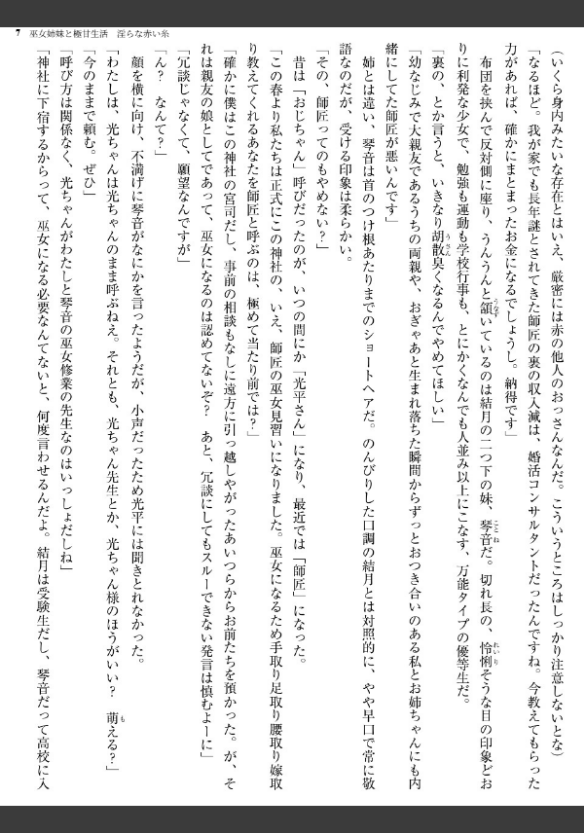 7 巫女姉妹と極甘生活 淫らな赤い糸
(いくら身内みたいな存在とはいえ、厳密には赤の他人のおっさんなんだ。こういうところはしっかり注意しないとな)
「なるほど。我が家でも長年謎とされてきた師匠の裏の収入減は、婚活コンサルタントだったんですね。今教えてもらった
力があれば、確かにまとまったお金になるでしょうし。納得です」
布団を挟んで反対側に座り、うんうんと頷いているのは結月の二つ下の妹、琴音だ。切れ長の、怜悧そうな目の印象どお
りに利発な少女で、勉強も運動も学校行事も、とにかくなんでも人並み以上にこなす、万能タイプの優等生だ。
「裏の、とか言うと、いきなり胡散臭くなるんでやめてほしい」
「幼なじみで大親友であるうちの両親や、おぎゃあと生まれ落ちた瞬間からずっとおつき合いのある私とお姉ちゃんにも内
緒にしてた師匠が悪いんです」
姉とは違い、琴音は首のつけ根あたりまでのショートヘアだ。のんびりした口調の結月とは対照的に、やや早口で常に敬
語なのだが、受ける印象は柔らかい。
「その、師匠ってのもやめない?」
昔は「おじちゃん」呼びだったのが、いつの間にか「光平さん」になり、最近では「師匠」になった。
「この春より私たちは正式にこの神社の、いえ、師匠の巫女見習いになりました。巫女になるため手取り足取り腰取り嫁取
り教えてくれるあなたを師匠と呼ぶのは、極めて当たり前では?」
「確かに僕はこの神社の宮司だし、事前の相談もなしに遠方に引っ越しやがったあいつらからお前たちを預かった。が、そ
れは親友の娘としてであって、巫女になるのは認めてないぞ? あと、冗談にしてもスルーできない発言は慎むよーに」
「冗談じゃなくて、願望なんですが」
「ん? なんて?」
顔を横に向け、不満げに琴音がなにかを言ったようだが、小声だったため光平には聞きとれなかった。
「わたしは、光ちゃんは光ちゃんのまま呼ぶねえ。それとも、光ちゃん先生とか、光ちゃん様のほうがいい? 萌える?」
「今のままで頼む。ぜひ」
「呼び方は関係なく、光ちゃんがわたしと琴音の巫女修業の先生なのはいっしょだしね」
「神社に下宿するからって、巫女になる必要なんてないと、何度言わせるんだよ。結月は受験生だし、琴音だって高校に入